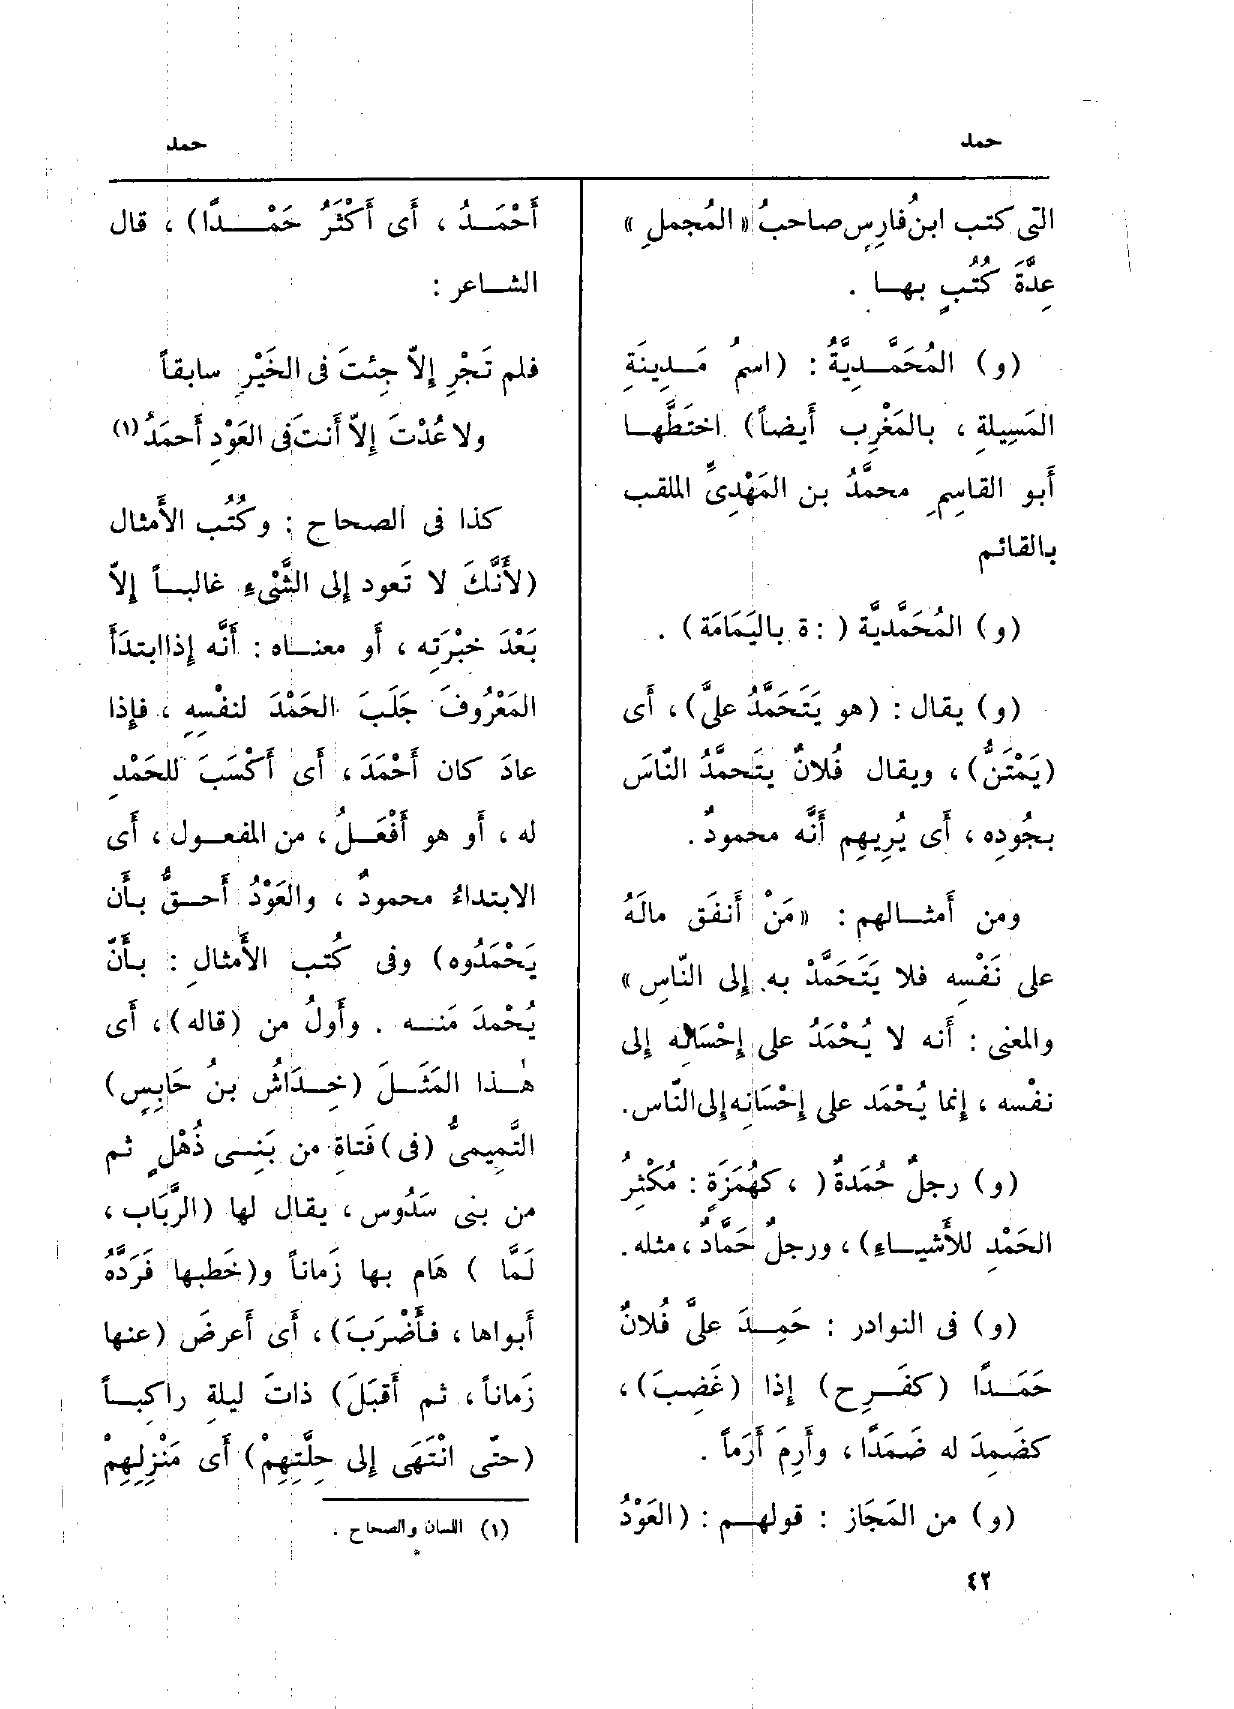 حمد
حمد
التى كتب ابنُ فارِس صاحبُ «المُجمل»
عِدَّةَ كُتُبٍ بهـا .
(و) المُحَمَّـدِيَّةُ : (اسمُ مَـدِينَةِ
المَسِيلةِ ، بالمَغْرِب أَيضاً) اختَطَّهـا
أَبو القاسِمِ محمَّدُ بن المَهْدِىِّ الملقب
بالقائم
(و) المُحَمَّديَّة ( : ة باليَمَامَة) .
(و) يقال : (هو يَتَحَمَّدُ علىَّ) ، أَى
(يَمْتَنُّ) ، ويقال فُلانٌ يتَحمَّدُ النَّاسَ
بجُودِه ، أَى يُرِيهِم أَنَّه محمودٌ.
ومن أَمثـالهم : «مَنْ أَنفَق مالَهُ
على نَفْسِه فلا يَتَحَمَّدْ به إِلى النَّاسِ»
والمعنى : أَنه لا يُحْمَدُ على إِحْسَانِه إِلى
نفْسه ، إِنما يُحْمَد على إِحْسَانِه إِلى النَّاس.
(و) رجلٌ حُمَدةٌ ( ، كهُمَزَةٍ : مُكْثِرُ
الحَمْدِ للأَشيـاءِ) ، ورجلٌ حَمَّادٌ ، مثله.
(و) فى النوادر : حَمِـدَ علىَّ فُلانٌ
حَمَـدًا (كفَـرِح) إِذا (غَضِبَ) ،
كضَمِدَ له ضَمَدًا ، وأَرِمَ أَرَماً .
(و) من المَجَاز : قولهـم : (العَوْدُ
أَحْمَـدُ ، أَى أَكْثَرُ حَمْـدًا) ، قال
الشـاعر :
فلم تَجْرِ إِلاّ جِئتَ فى الخَيْرِ سابقاً
ولا عُدْتَ إِلاّ أَنت فى العَوْدِ أَحمَدُ (١)
كذا فى الصحاح : وكُتُب الأَمثال
(لأَنَّكَ لا تَعود إِلى الشَّىْءِ غالبـاً إِلاّ
بَعْدَ خِبْرَتِه ، أَو معنـاه : أَنَّه إِذا ابتدَأَ
المَعْرُوفَ جَلَبَ الحَمْدَ لنفْسِه ، فإِذا
عادَ كان أَحْمَدَ ، أَى أَكْسَبَ للحَمْدِ
له ، أَو هو أَفْعَـلُ ، من المفعـول ، أَى
الابتداءُ محمودٌ ، والعَوْدُ أَحـقُّ بأَن
يَحْمَدُوه) وفى كُتب الأَمثالِ : بأَنْ
يُحْمدَ مَنـه . وأَولُ من (قاله) ، أَى
هٰـذا المَثَـلَ (خِـدَاشُ بنُ حَابِسٍ)
التَّمِيمىُّ (فى) فَتَاةٍ من بَنِـى ذُهْلٍ ثم
من بنى سَدُوس ، يقال لها (الرَّبَاب ،
لَمَّا ) هَام بها زَماناً و(خَطبها فَرَدَّهُ
أَبواها ، فأَضْرَبَ) ، أَى أَعرضَ (عنها
زَماناً ، ثم أَقبَلَ) ذاتَ ليلةٍ راكبـاً
(حتَّى انْتَهَى إِلى حِلَّتِهِمْ) أَى مَنْزِلِهِمْ
(١) اللسان والصحاح .
٤٢